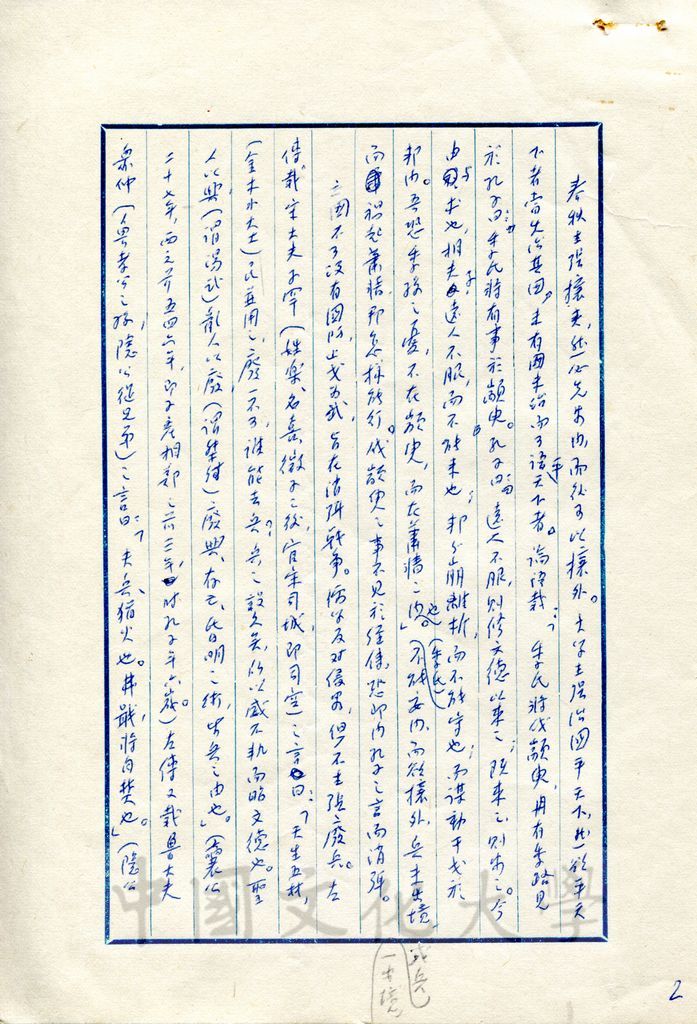 春秋主張攘夷,然必先安內,而後可以攘外。大學主張治國平天下,然欲平天
下者當先治其國,未有國未治而可語平天下者。論語載:「季氏將伐顓臾,冉有季路見
於孔子曰:『季氏將有事於顓臾。』孔子曰:『遠人不服,則修文德以來之;既來之,則安之。今
由與求也,相夫子,遠人不服,而不能來也;邦分崩離析,而不能守也;而謀動干戈於
邦內。吾恐季孫之憂,不在顓臾,而在蕭牆之內也。』」(季氏)不能安內,而欲攘外,兵未出境,
而禍起蕭牆,那怎樣能行。伐顓臾之事不見於經傳,恐即因孔子之言而消弭。
立國不可沒有國防,止戈為武,旨在消弭戰爭。儒家反對侵略,但不主張廢兵。左
傳載宋大夫子罕(姓樂,名喜,微子之後,官宋司城,即司空)之言曰:「天生五材,
(金木水火土)民並用之,廢一不可,誰能去兵?兵之設久矣,所以威不軌而昭文德也。聖
人以興,(謂湯武)亂人以廢,(謂桀紂)廢興、存亡、昏明之術,皆兵之由也。」(襄公
二十七年,西元前五四六年,即子產相鄭之前三年,時孔子年六歲。)左傳又載魯大夫
眾仲(魯孝公之孫,隱公從兄弟)之言曰:「夫兵,猶火也。弗戢,將自焚也。」(隱公
一出境
中國文化大學
2